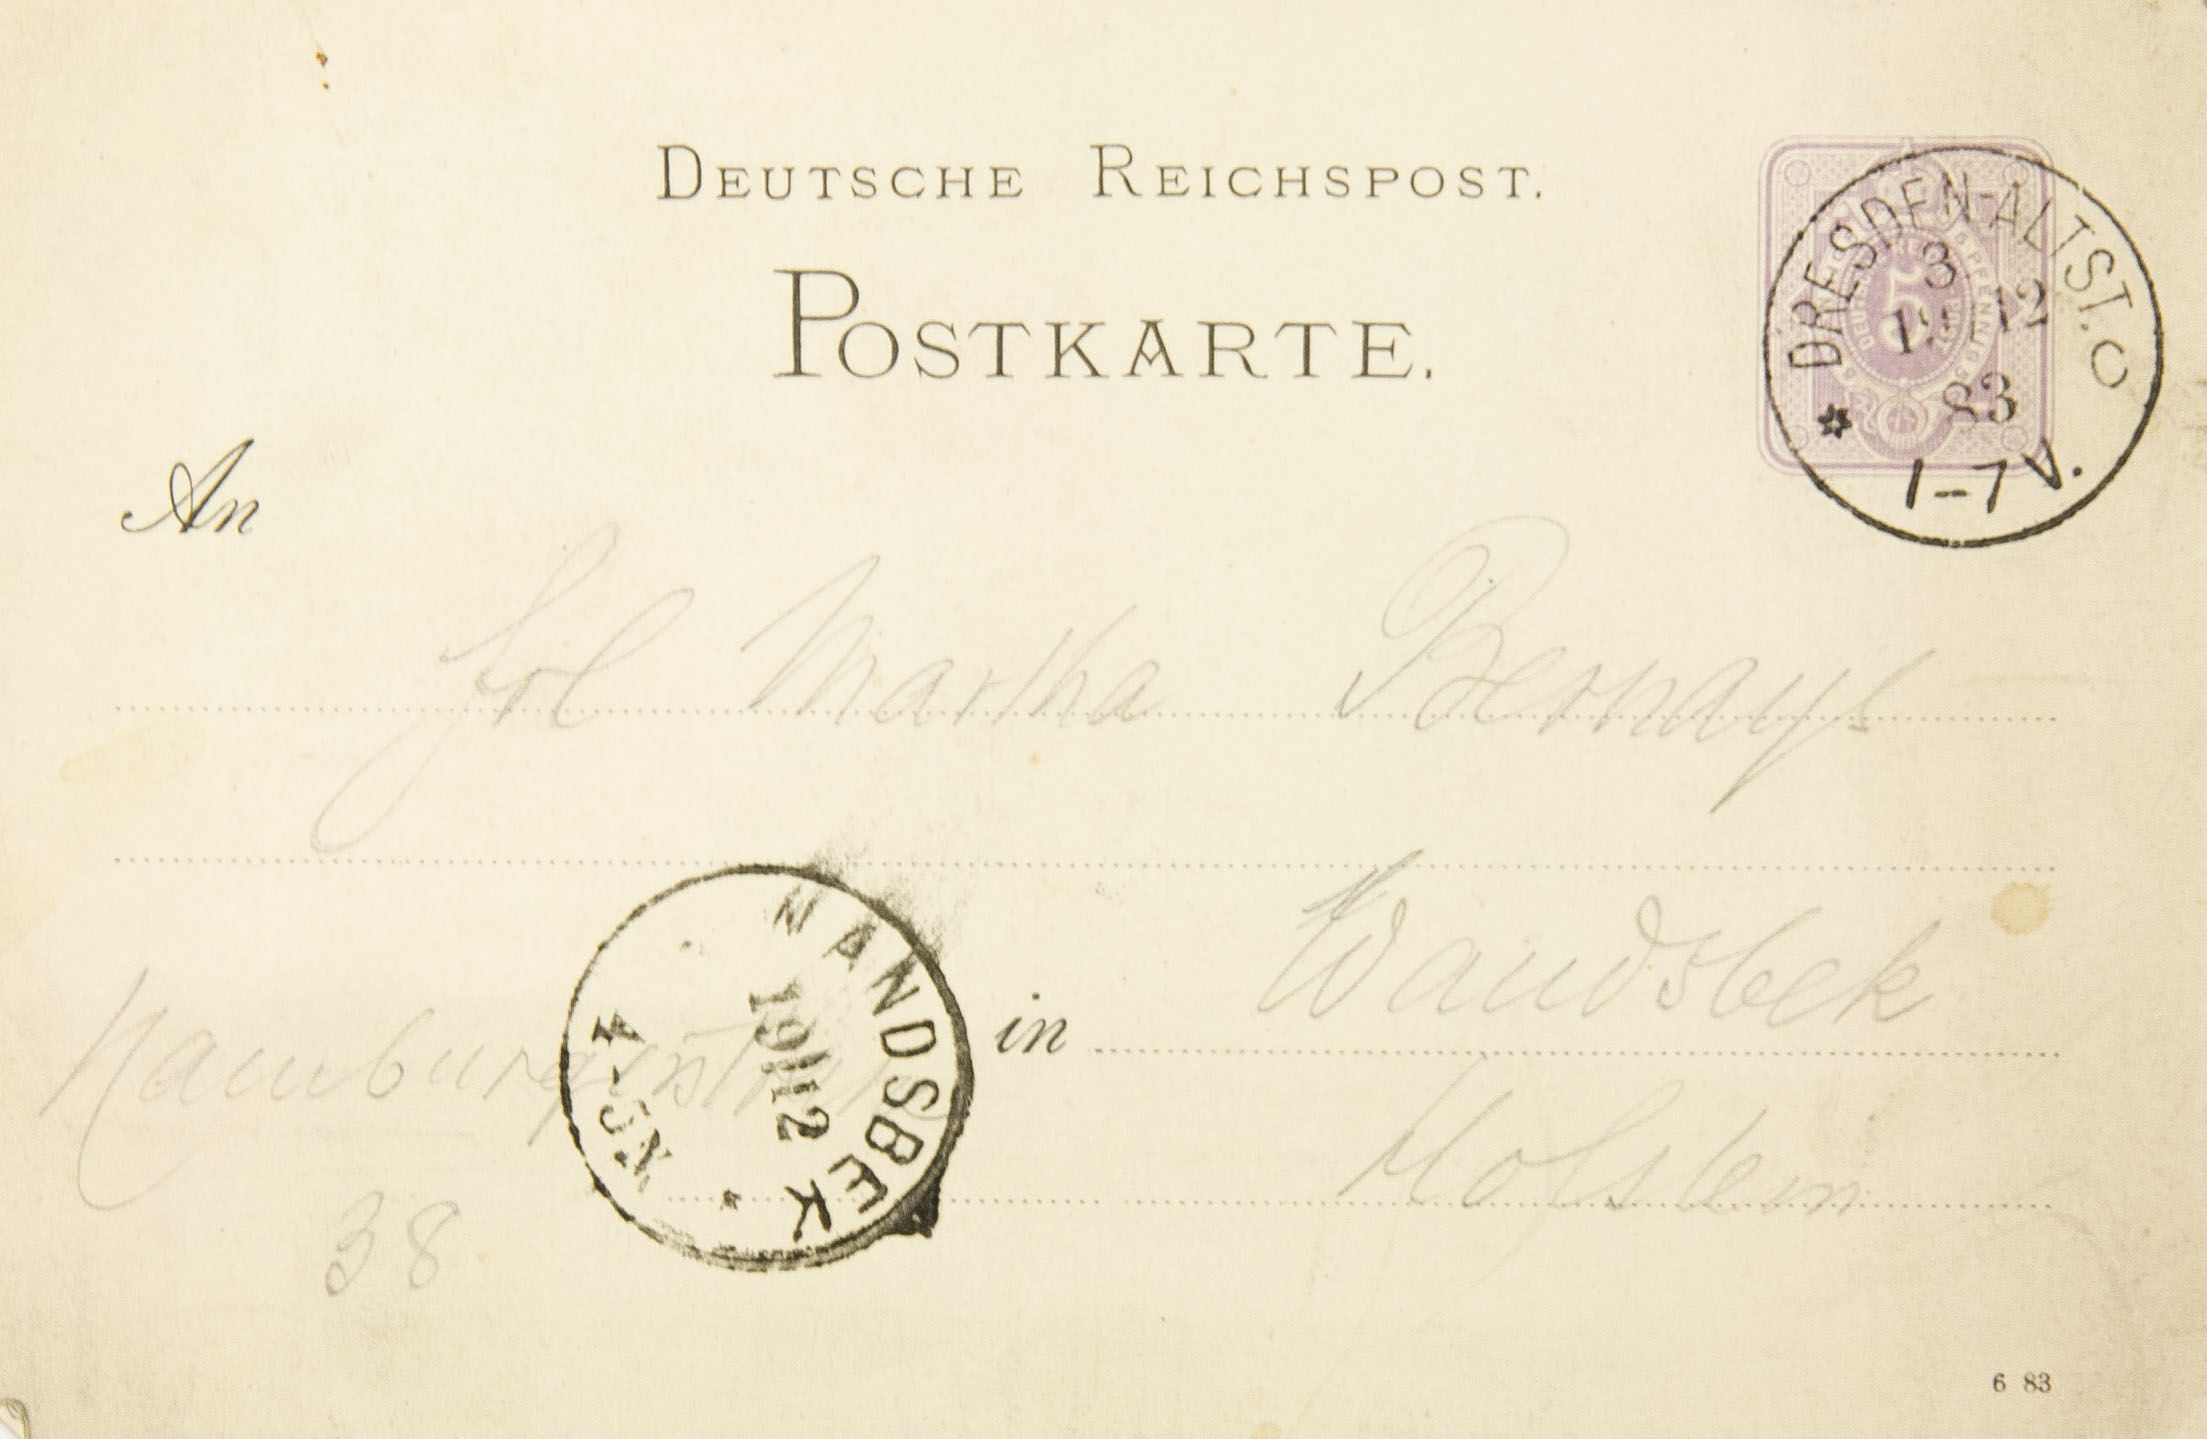 DEUTSCHE REICHSPOST.
POSTKARTE.
5 PFENNIG
DRESDEN-ALTST. O
3
12
83
1-7 V.
An
Frl Martha Bernays
in Wandsbek
Hamburgerstraße
38
Holstein
WANDSBEK
19 12
4-5N.
6 83